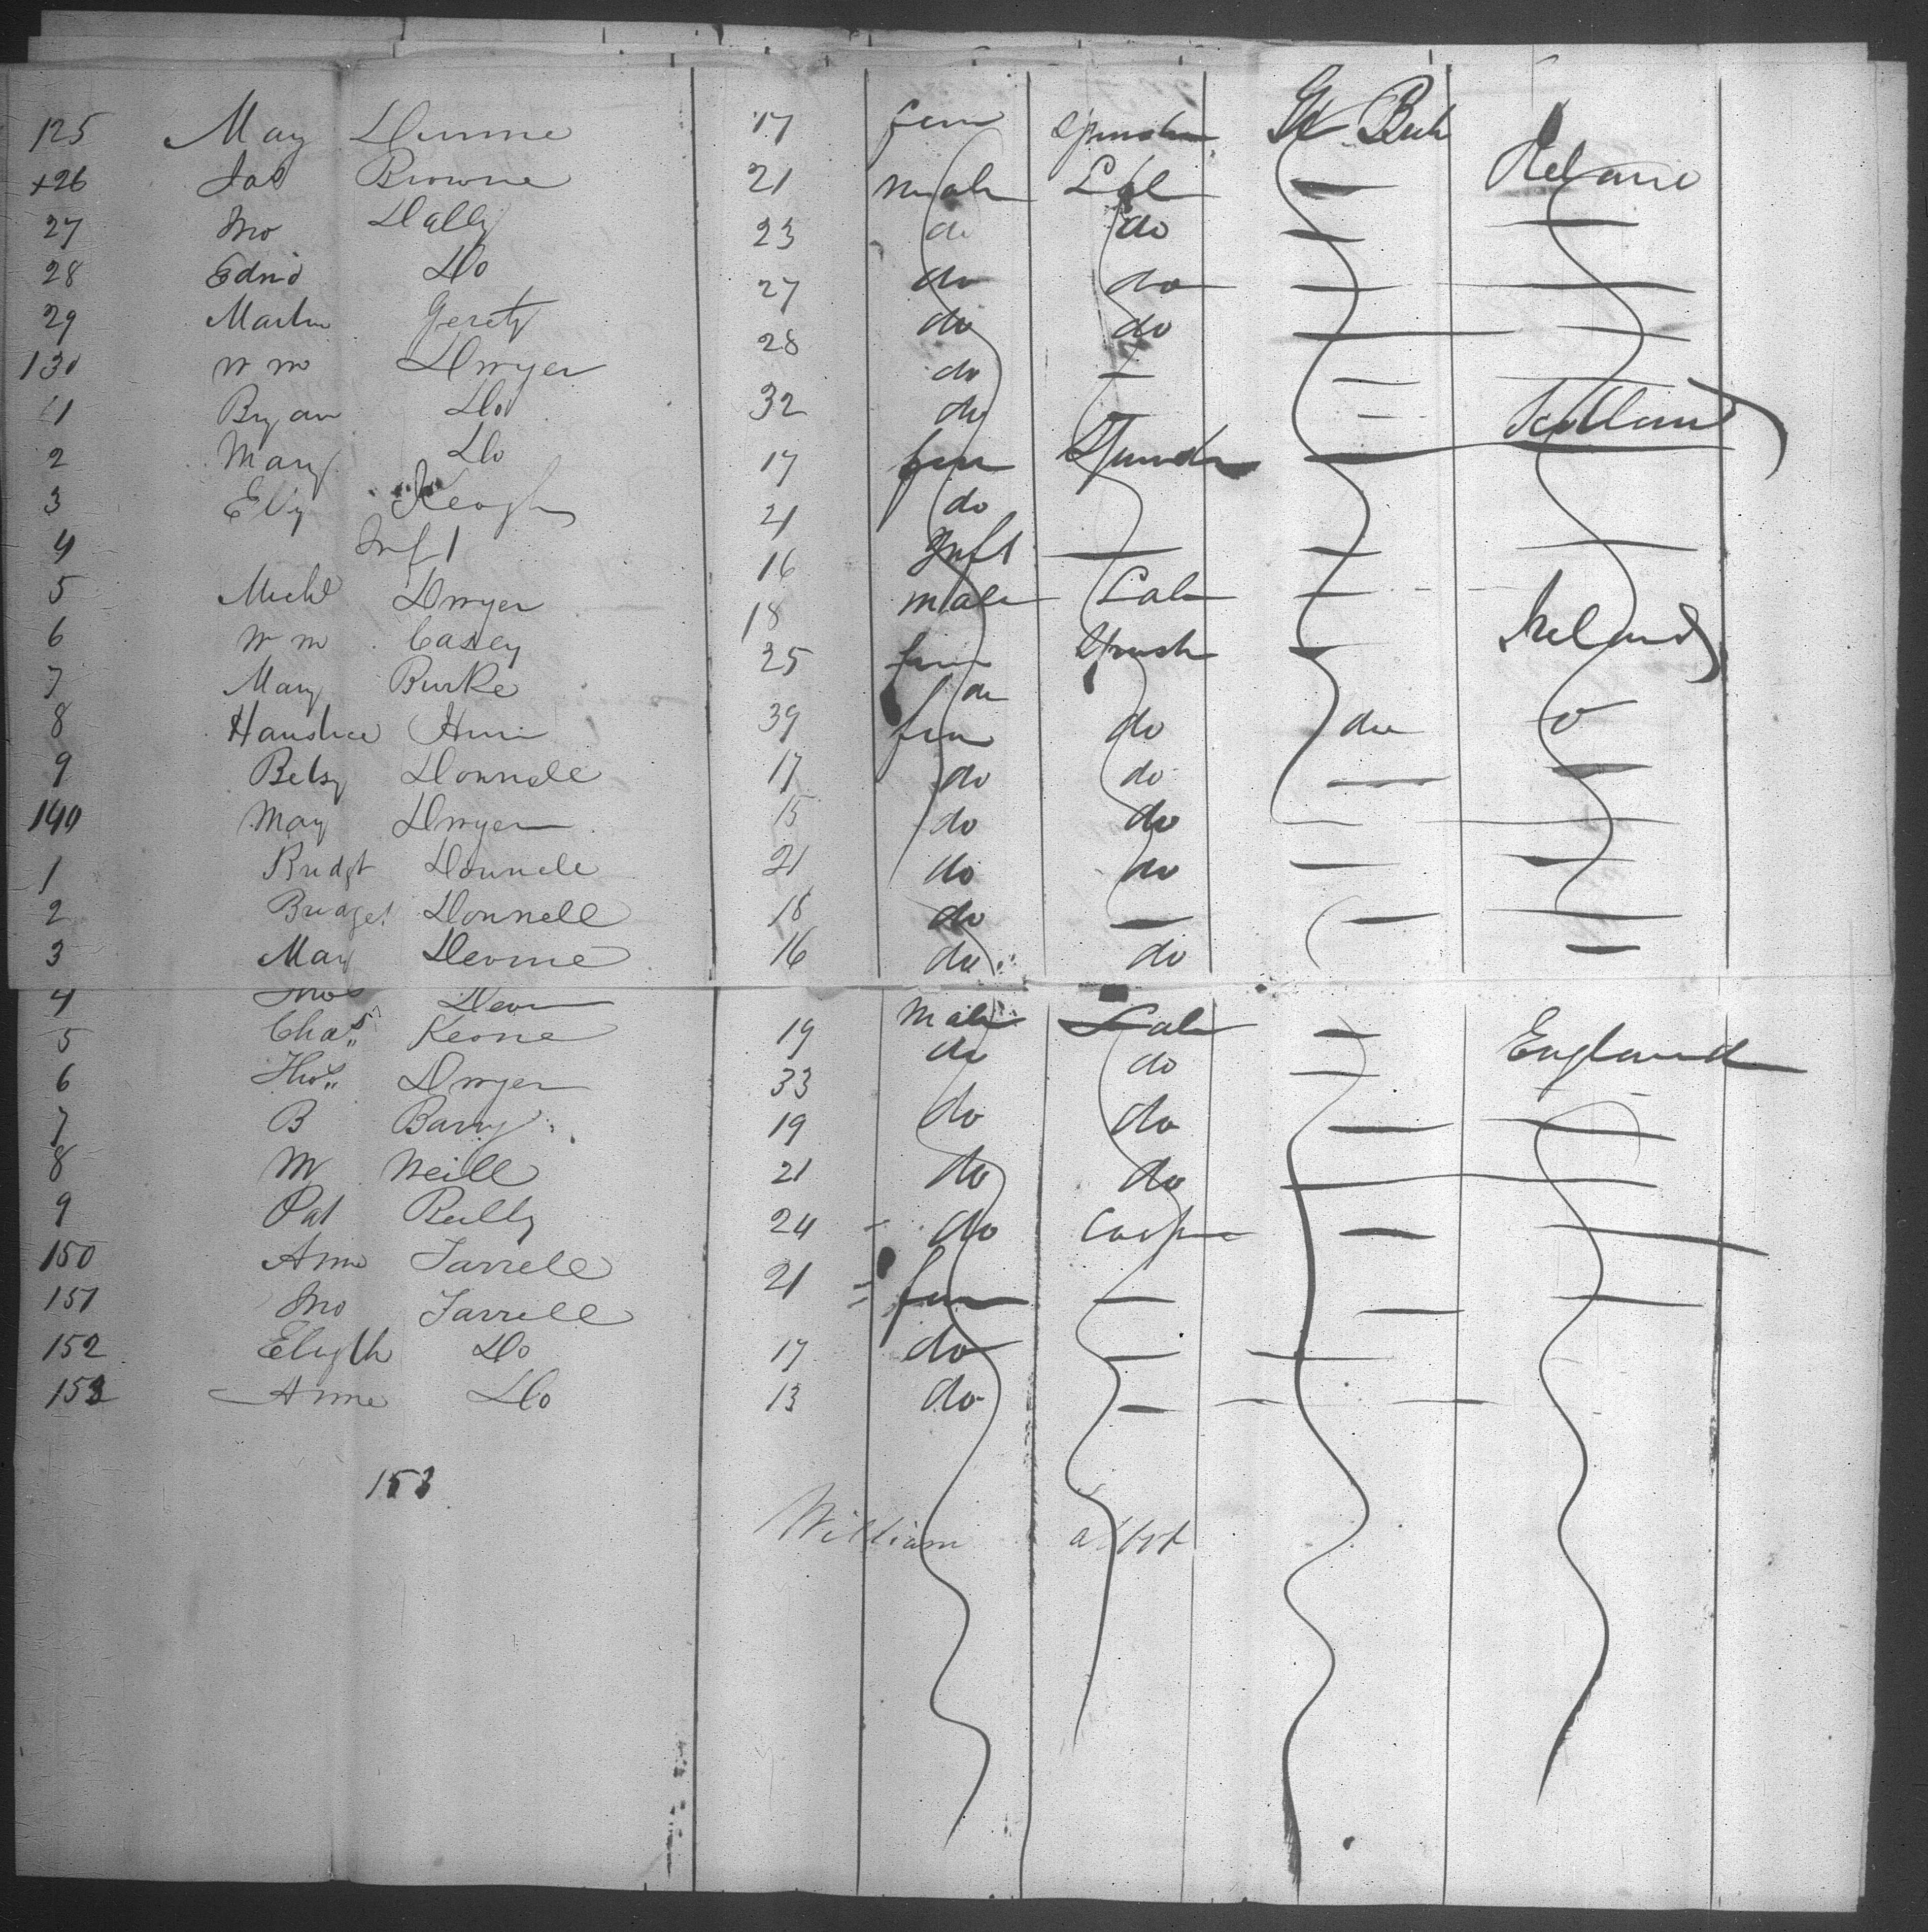 125 May Dunne 17 fem Spinster Gt Brit
+26 Jas Browne 21 male Lab — Ireland
27 Jno Dally 23 do do — —
28 Edmd Do 27 do do — —
29 Martin Geraty 28 do do — —
130 Wm Dwyer do — — —
11 Bryan Do 32 do — Scotland
2 Mary Do 17 fem —
3 Elly Keogh 21 do
4 Inft 16 Inft — — —
5 Michl Dwyer 18 male Lab —
6 Wm Casey 25 fem — Ireland
7 Mary Burke do
8 39 fem do do
9 Betsy Donnell 17 do do — —
140 May Dwyer 15 do do — —
1 Bridgt Donnell 21 do do — —
2 Bridget Donnell 18 do — — —
3 Mary Devine 16 do do —
4 male Lab — England
5 Chas Keone 19 do do —
6 Thos Dwyer 33 do do — —
7 B Barry 19 do do —
8 M Neill 21 do do — —
9 Pat Reilly 24 do — —
150 Anne Farrell 21 fem — — —
151 Jno Farrell
152 Do 17 do — —
153 Anne Do 13 do — — —
153
William